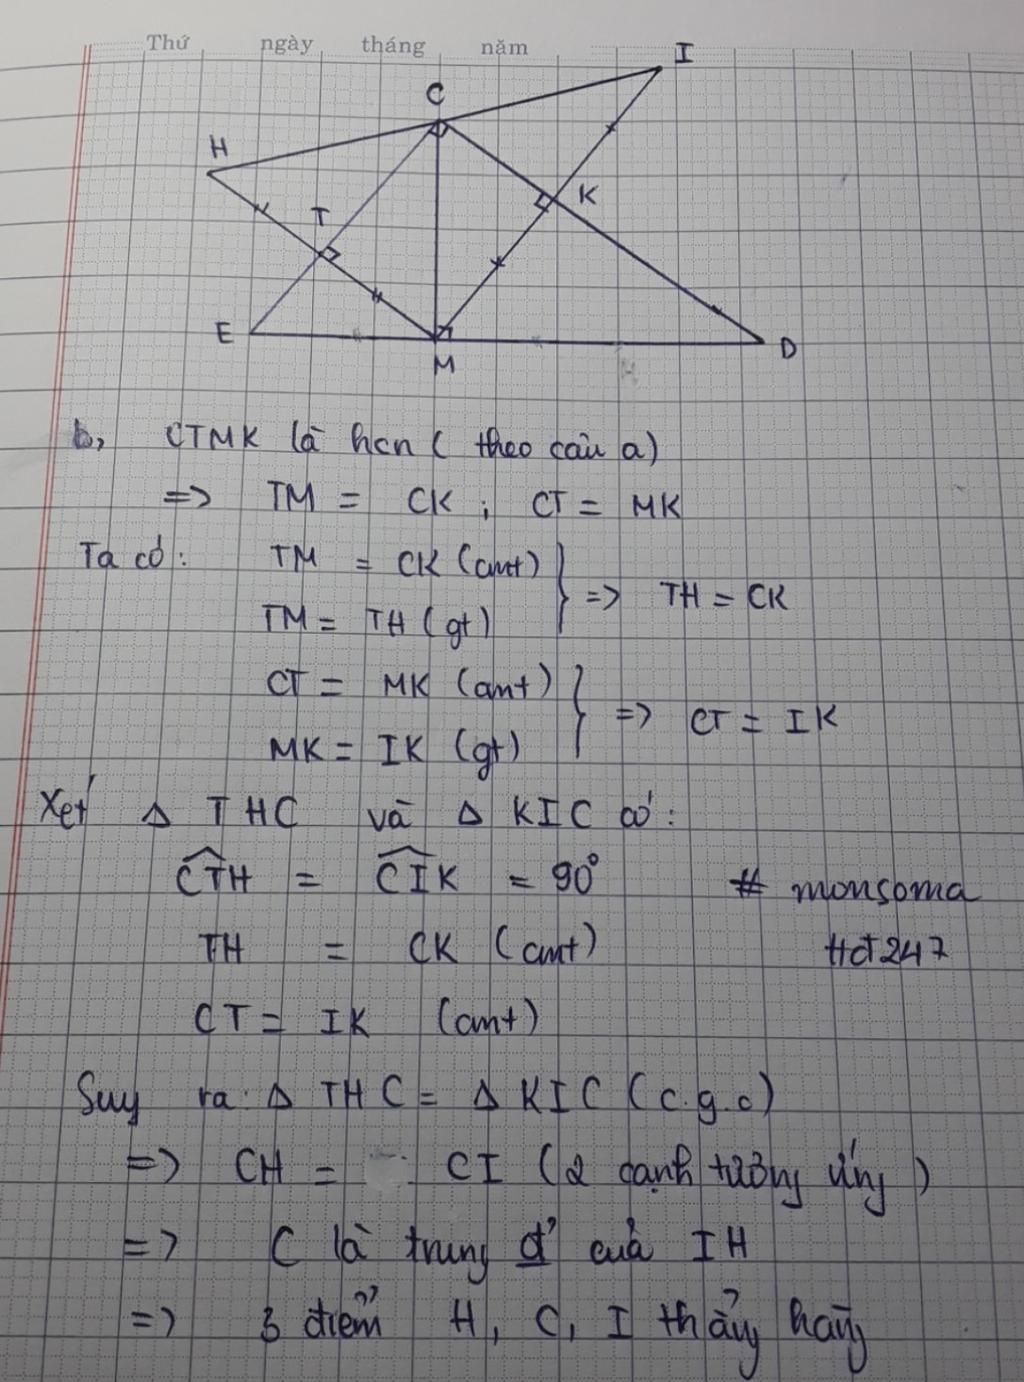 Thứ ngày tháng năm
I
C
H
T
K
E
M
D
b, CTMK là hcn ( theo câu a)
=> TM = CK ; CT = MK
Ta có: TM = CK (cmt)
TM = TH (gt)
=> TH = CK
CT = MK (cmt)
MK = IK (gt)
=> CT = IK
Xét Δ THC và Δ KIC có:
CTH = CIK = 90°
# monsoma
Hđ247
TH = CK (cmt)
CT = IK (cmt)
Suy ra: Δ THC = Δ KIC (c.g.c)
=> CH = CI (2 cạnh tương ứng )
=> C là trung đ' của IH
=> 3 điểm H, C, I thẳng hàng